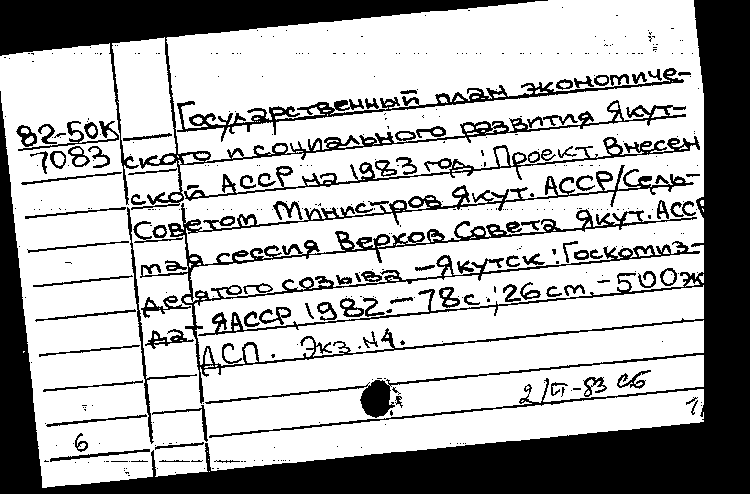 82-50К
7083
Государственный план экономиче-
ского и социального развития Якут-
ской АССР на 1983 год : Проект. Внесен
Советом Министров Якут. АССР/Седь-
мая сессия Верхов. Совета Якут. АССР
десятого созыва. – Якутск : Госкомиз-
дат ЯАССР, 1982. – 78 с.; 26 см. – 500 ж
ДСП. Экз. N4.
2/VI-83 СБ
6